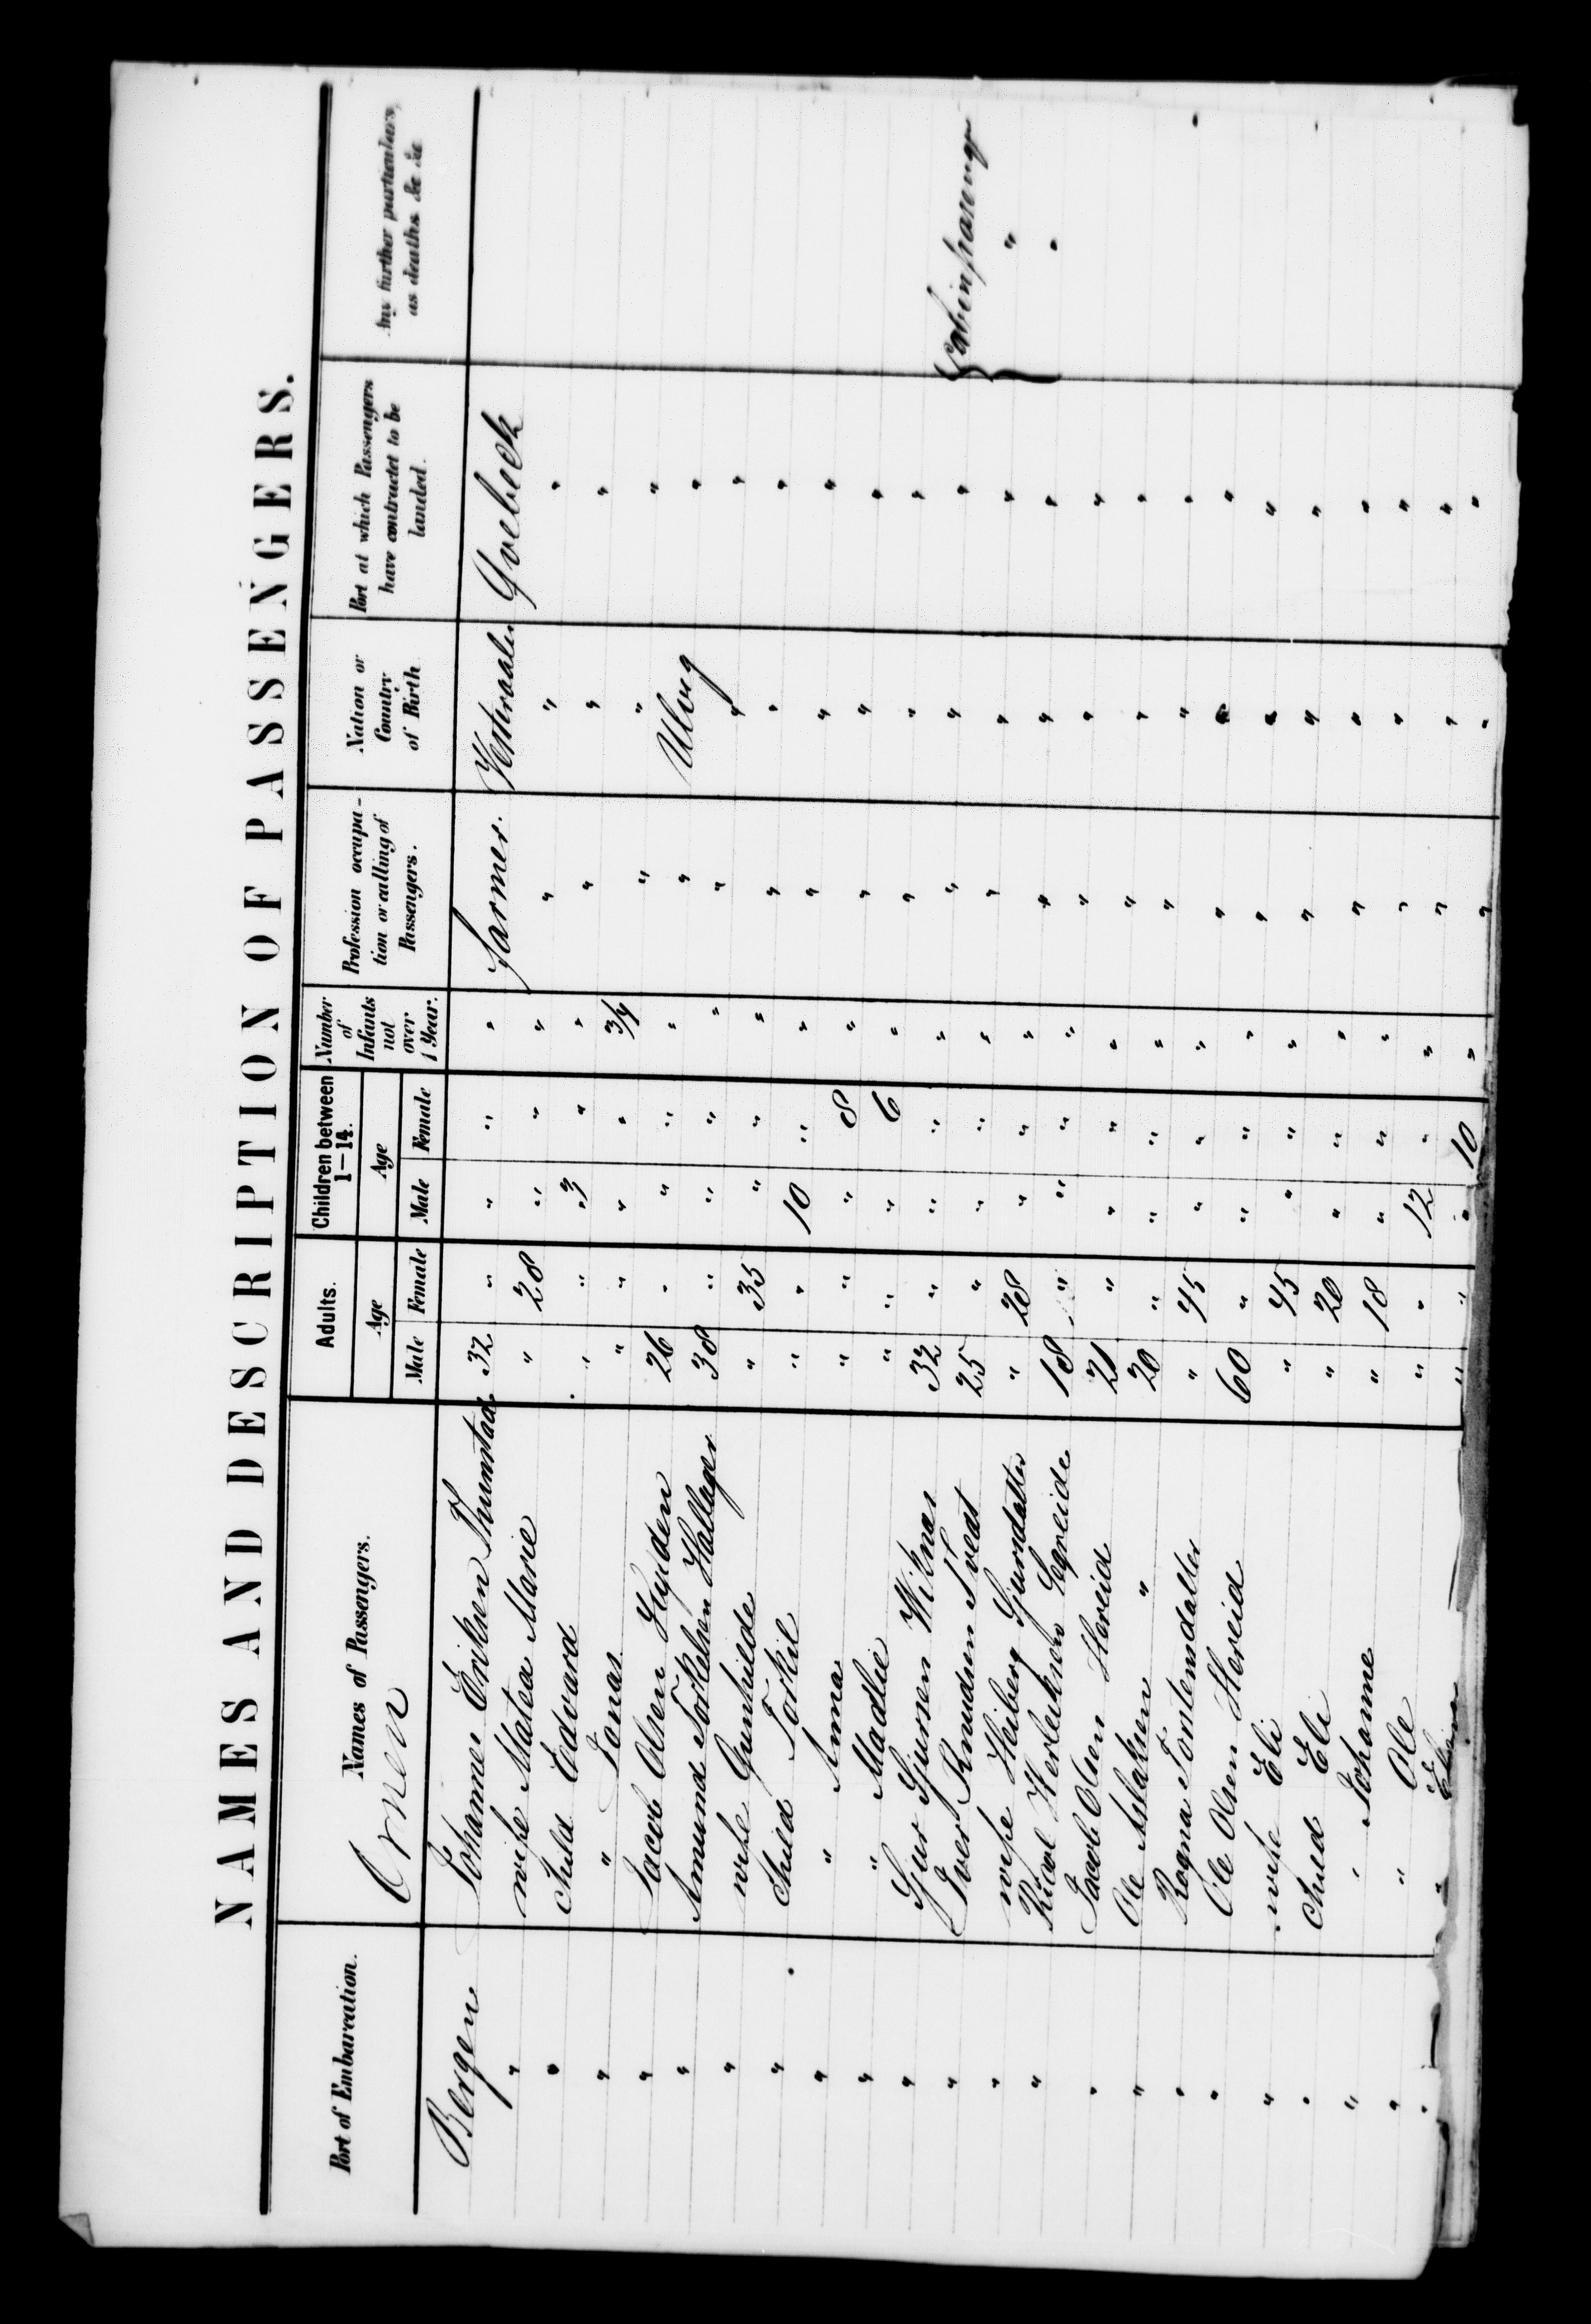 NAMES AND DESCRIPTION OF PASSENGERS.
Port of Embarcation. Names of Passengers. Adults. Age Male Female Children between 1—14. Age Male Female Number of Infants not over 1 Year. Profession occupation or calling of Passengers. Nation or Country of Birth Port at which Passengers have contractet to be landed. Any further particulars, as deaths &c &c
Ornen
Bergen Johannes Eriksen 32 " " " " farmer. Qvebeck
" wife Matea Marie " 28 " " " " " "
" child Edvard " " 3 " " " " "
" " Jonas " " " " 3/4 " " "
" Jacob Olsen 26 " " " " " Ulvig "
" Amund Torkelsen Hallager 38 " " " " " " "
" wife Gunhilde " 35 " " " " " "
" child Torkil " " 10 " " " " "
" " Anna " " " 8 " " " "
" " Madlie " " " 6 " " " "
" Sjur Sjursen Wiknas 32 " " " " " " "
" Iver Knudsen Tvedt 25 " " " " " " " Cabinpasseng
" wife Heiberg Sjursdatter " 28 " " " " " " "
" Herleiksen 18 " " " " " " " "
" Jacob Olsen Hereid 21 " " " " " " "
" Ole Aslaksen " 20 " " " " " " "
" Ragna Torstensdatter " 45 " " " " " "
" Ole Olsen Hereid 60 " " " " " " "
" wife Eli " 45 " " " " " "
" child Eli " 20 " " " " " "
" " Johanne " 18 " " " " " "
" " Ole " " 12 " " " " "
" " " " " 10 " " " "